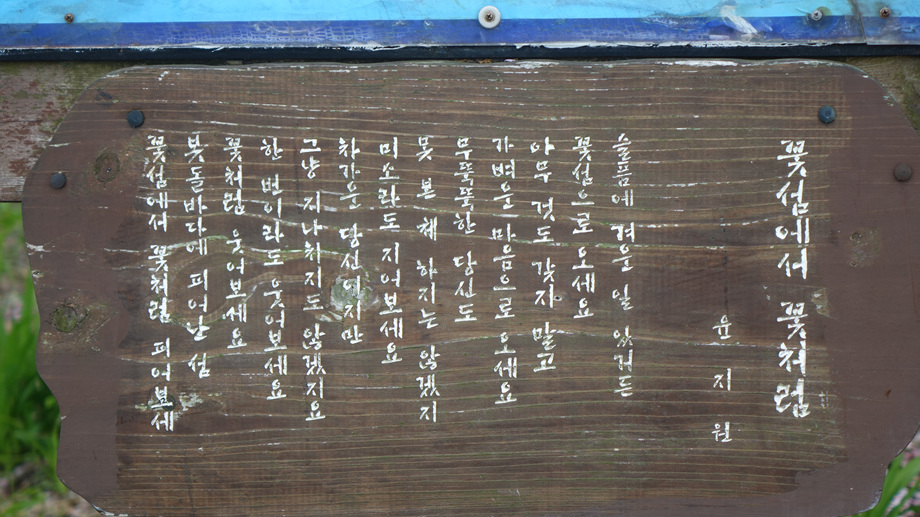 꽃섬에서 꽃처럼
윤지원
슬픔에 겨울 일 있거든
꽃섬으로 오세요
아무 것도 갖지 말고
가벼운 마음으로 오세요
무뚝뚝한 당신도
못 본 체 하지는 않겠지
미소라도 지어보세요
차가운 당신이지만
그냥 지나치지도 않겠지요
한 번이라도 웃어보세요
꽃처럼 웃어보세요
봇돌바다에 피어난 섬
꽃섬에서 꽃처럼 피어보세